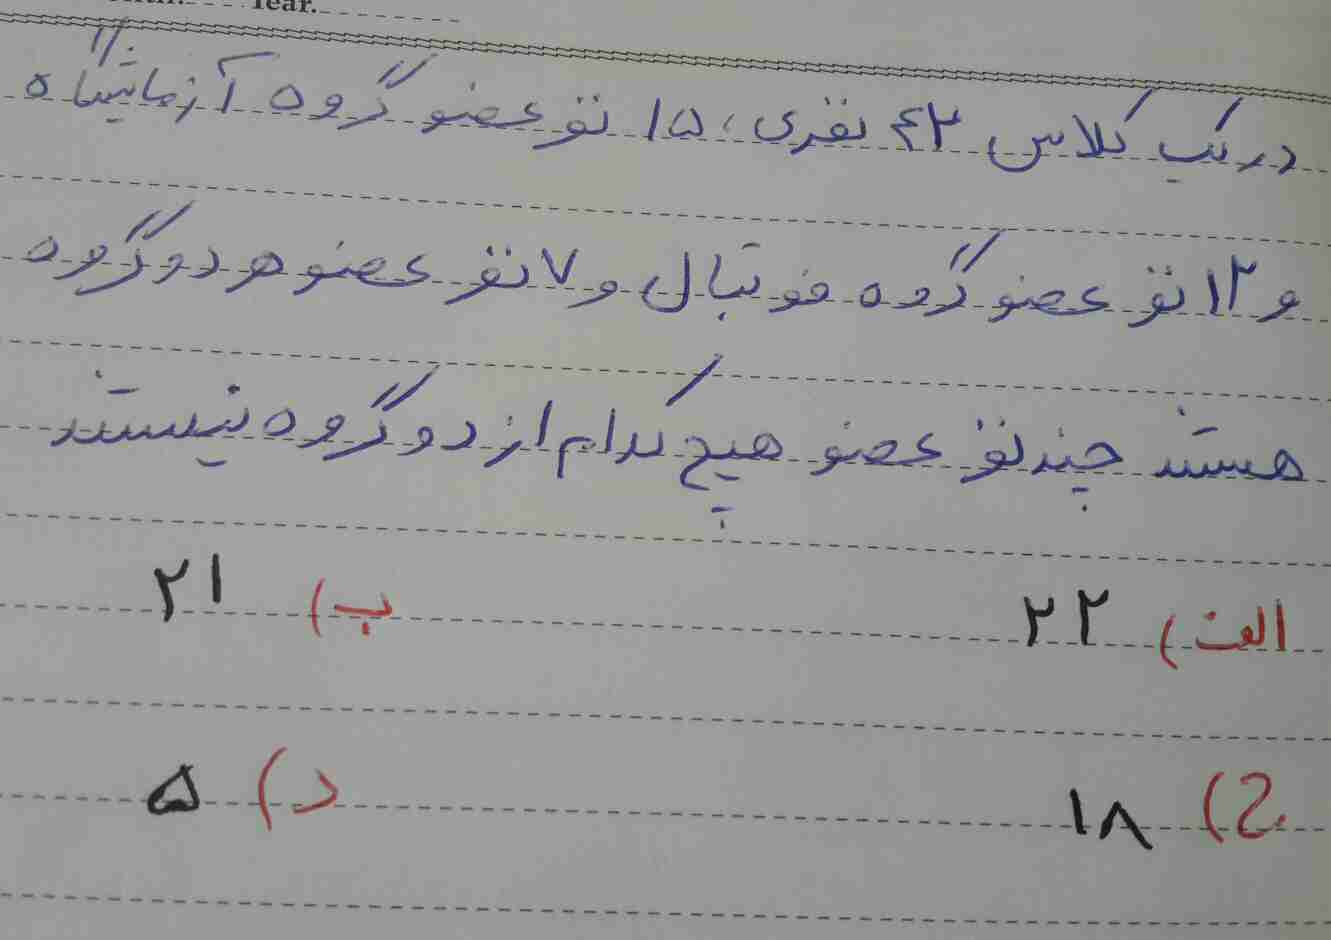 Year.
در یک کلاس ۴۲ نفری، ۱۵ نفر عضو گروه آزمایشگاه
و ۱۲ نفر عضو گروه فوتبال و ۷ نفر عضو هر دو گروه
هستند چند نفر عضو هیچ کدام از دو گروه نیستند
الف) ۲۲ ب) ۲۱
ج) ۱۸ د) ۵